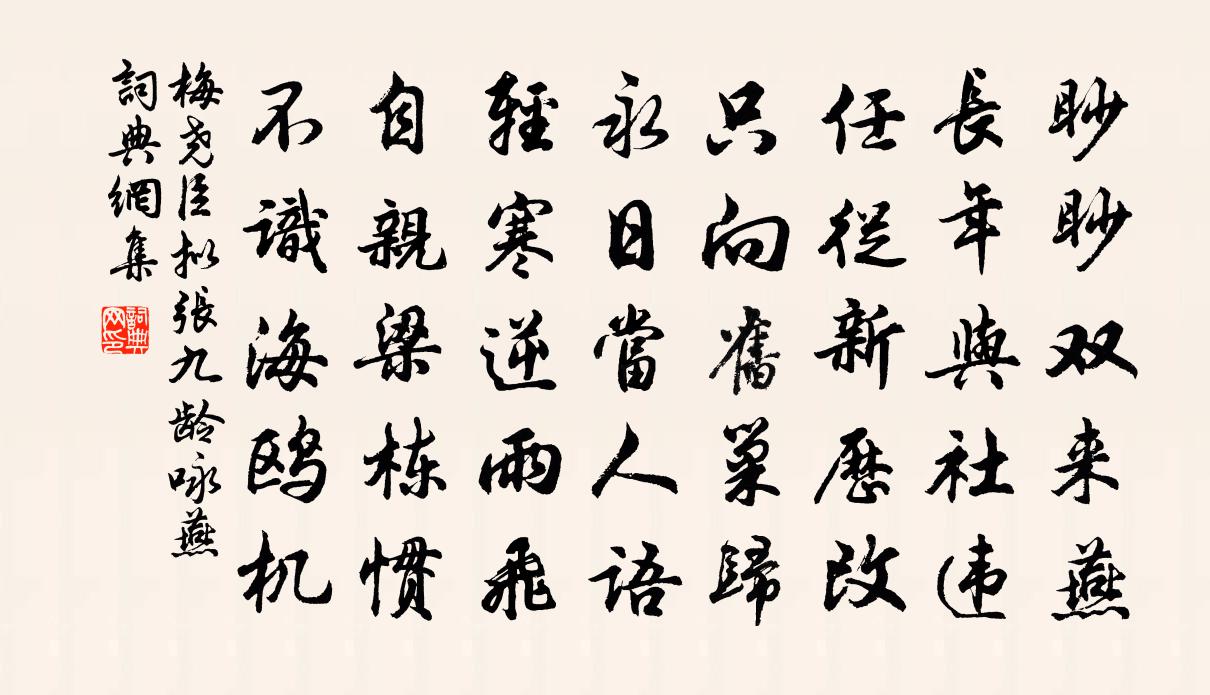 眇眇双来燕
長年與社违
任從新歷改
只向舊巢歸
永日當人语
輕寒逆雨飛
自親梁栋慣
不識海鸥机
梅尧臣拟張九龄咏燕
詞典網集
詞典网印